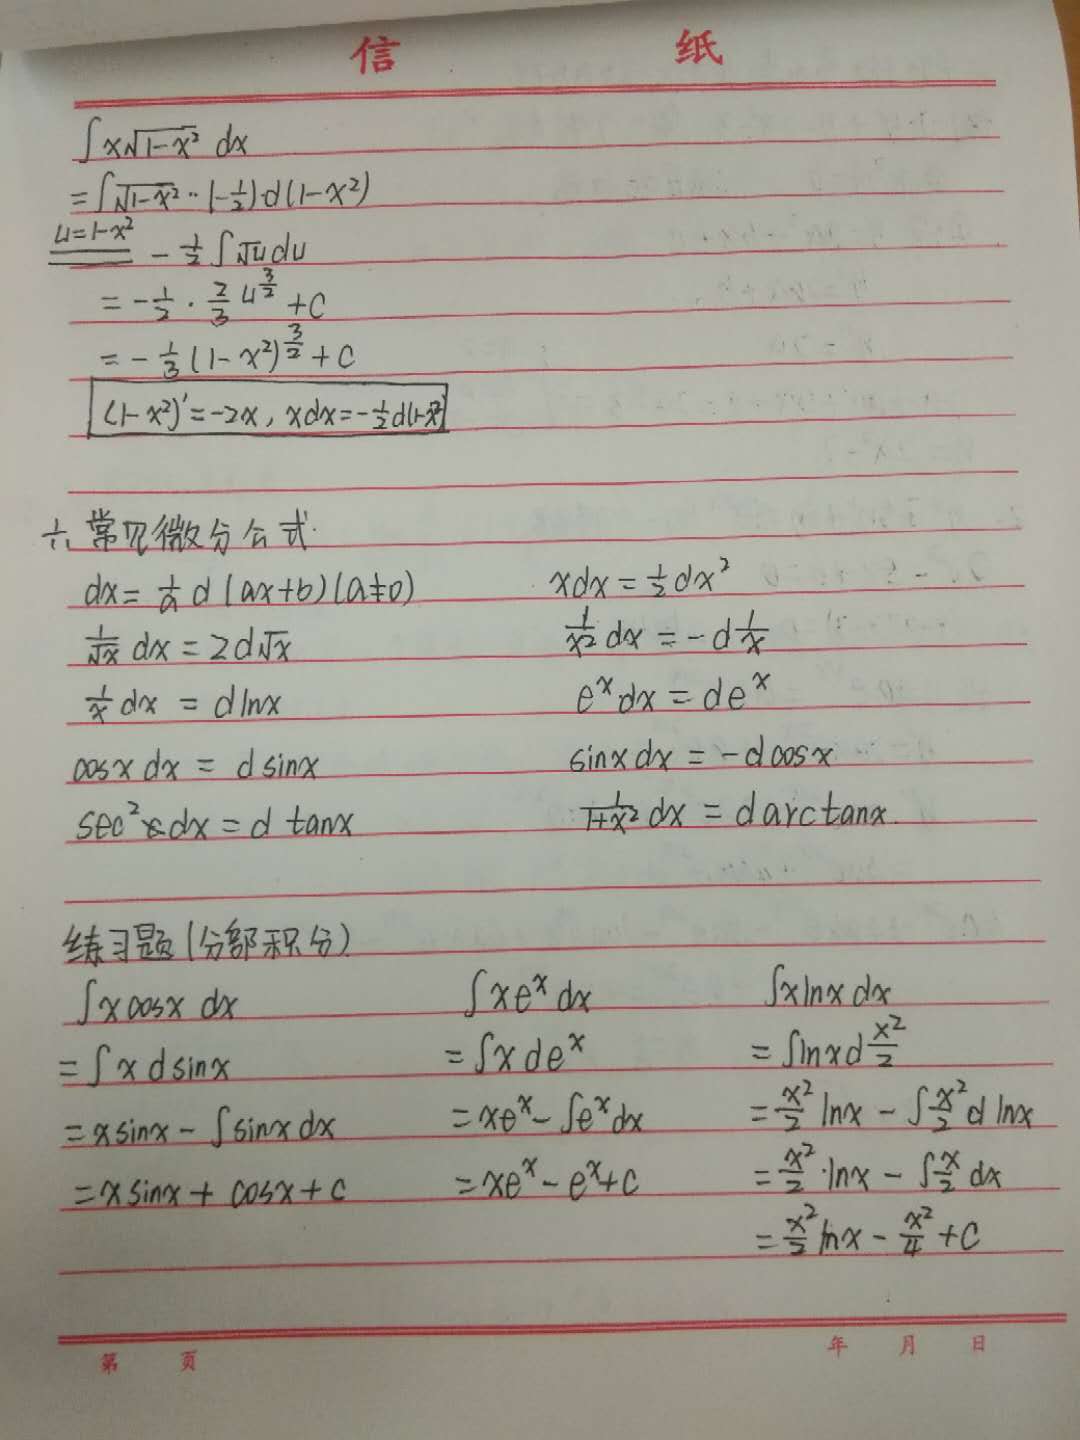 信 纸
∫x√(1-x²) dx
=∫√(1-x²)··(-1/2)·d(1-x²)
u=1-x²
-1/2∫√u du
=-1/2·2/3 u^(3/2)+C
=-1/3(1-x²)^(3/2)+C
(1-x²)'=-2x, xdx=-1/2d(1-x²)
六、常见微分公式.
dx=1/a d(ax+b)(a≠0) xdx=1/2dx²
1/√x dx=2d√x 1/x² dx=-d1/x
1/x dx=dlnx e^x dx=de^x
cosxdx=dsinx sinxdx=-dcosx
sec²xdx=d tanx 1/(1+x²) dx=darctanx.
练习题(分部积分)
∫xcosx dx ∫xe^x dx ∫xlnxdx
=∫xdsinx =∫xde^x =∫lnxd x²/2
=xsinx-∫sinxdx =xe^x-∫e^xdx =x²/2 lnx-∫x²/2 d lnx
=xsinx+cosx+C =xe^x-e^x+C =x²/2·lnx-∫x/2 dx
=x²/2 lnx-x²/4+C
第 页 年 月 日